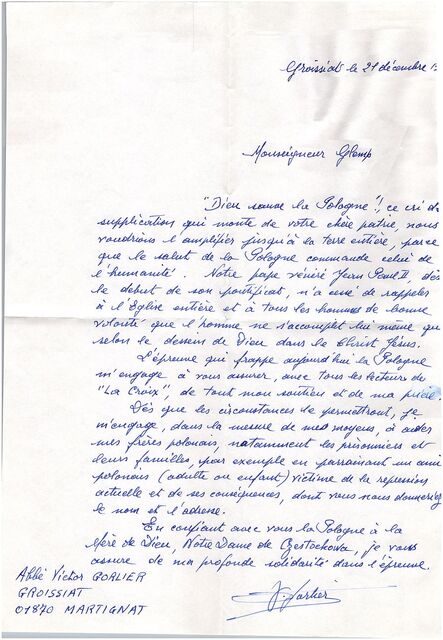 Groissiat le 21 décembre 1
Monseigneur Glemp
"Dieu sauve la Pologne"! ce cri de
supplication qui monte de votre chère patrie, nous
voudrions l'amplifier jusqu'à la terre entière, parce
que le salut de la Pologne commande celui de
l'humanité. Notre pape vénéré Jean Paul II, dès
le début de son pontificat, n'a cessé de rappeler
à l'Eglise entière et à tous les hommes de bonne
volonté que l'homme ne s'accomplit lui même que
selon le dessein de Dieu dans le Christ Jésus.
L'épreuve qui frappe aujourd'hui la Pologne
m'engage à vous assurer, avec tous les lecteurs de
"La Croix", de tout mon soutien et de ma prière
Dès que les circonstances le permettront, je
m'engage, dans la mesure de mes moyens, à aider
mes frères polonais, notamment les prisonniers et
leurs familles, par exemple en parrainant un ami
polonais (adulte ou enfant) victime de la répression
actuelle et de ses conséquences, dont vous nous donnerez
le nom et l'adresse.
En confiant avec vous la Pologne à la
Mère de Dieu, Notre Dame de Czestochowa, je vous
assure de ma profonde solidarité dans l'épreuve.
Abbé Victor GORLIER
GROISSIAT
01870 MARTIGNAT
V. Gorlier